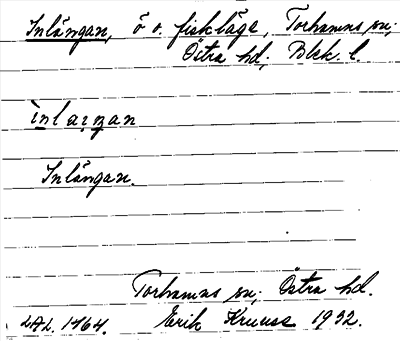 Inlängan, ö o. fiskläge, Torhamns sn;
Östra hd; Blek. l.
inlaŋan
Inlängan.
Torhamns sn; Östra hd.
LAL. 1764. Erik Kruuse 1932.